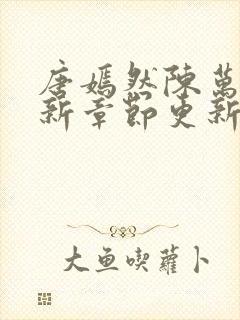 唐嫣然陳萬
新章節更新
大魚喫蘿卜